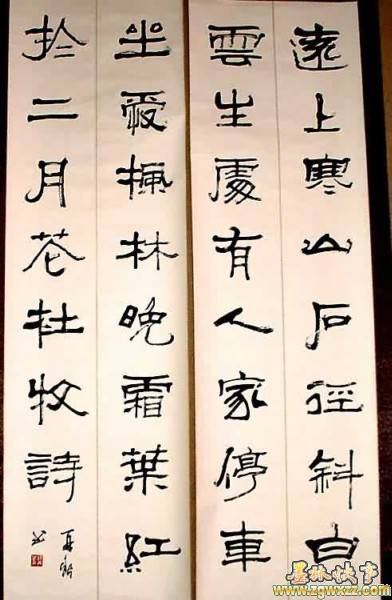 遠上寒山石徑斜白
雲生處有人家停車
坐愛楓林晚霜葉紅
於二月花杜牧詩
墨林快事
www.zgwxzz.com